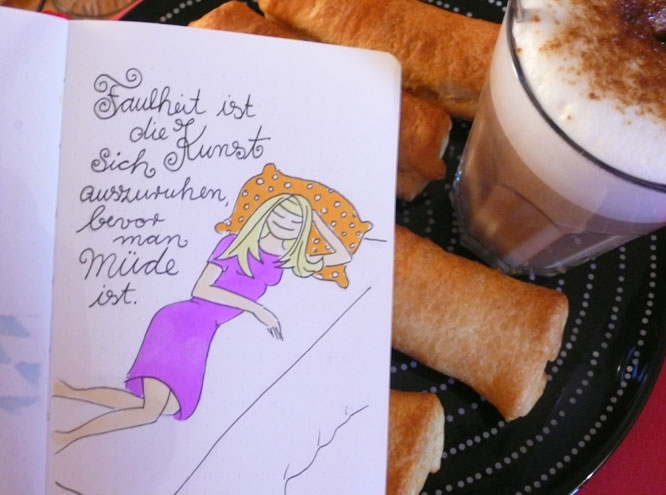 Faulheit ist
die
Sich Kunst
auszuruhen,
bevor
man
Müde
ist.